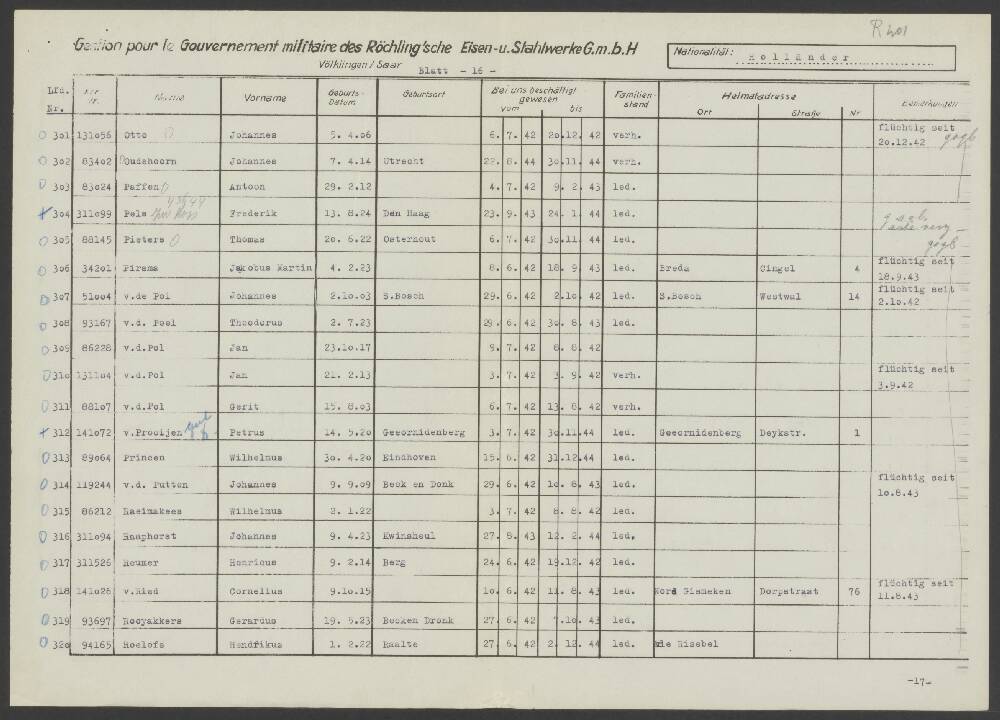 R 201
Gestion pour le Gouvernement militaire des Röchling'sche Eisen-u. Stahlwerke G.m.b.H
Völklingen / Saar
Nationalität: Holländer
Blatt - 16 -
Lfd. Nr. Vorname Geburts-Datum Geburtsort Bei uns beschäftigt gewesen vom bis Familienstand Heimatadresse Ort Straße Nr Bemerkungen
301 131056 Otto Johannes 5. 4.06 6. 7. 42 20.12. 42 verh. flüchtig seit
20.12.42
302 83402 Oudshoorn Johannes 7. 4.14 Utrecht 22. 8. 44 30.11. 44 verh.
303 83024 Paffen Antoon 29. 2.12 4. 7. 42 9. 2. 43 led.
304 311099 Pels Frederik 13. 8.24 Den Haag 23. 9. 43 24. 1. 44 led.
305 88145 Pieters Thomas 20. 6.22 Osterhout 6. 7. 42 30.11. 44 led.
306 34201 Pirsma Jakobus Martin 4. 2.23 8. 6. 42 18. 9. 43 led. Breda Cingel 4 flüchtig seit
18.9.43
307 51004 v.de Pol Johannes 2.10.03 S.Bosch 29. 6. 42 2.10. 42 led. S.Bosch Westwal 14 flüchtig seit
2.10.42
308 93167 v.d. Poel Theodorus 2. 7.23 29. 6. 42 30. 8. 43 led.
309 86228 v.d.Pol Jan 23.10.17 9. 7. 42 8. 8. 42
310 131104 v.d.Pol Jan 21. 2.13 3. 7. 42 3. 9. 42 verh. flüchtig seit
3.9.42
311 88107 v.d.Pol Gerit 15. 8.03 6. 7. 42 13. 8. 42 verh.
312 141072 v.Prooijen Petrus 14. 5.20 Geeornidenberg 3. 7. 42 30.11.44 led. Geeornidenberg Deykstr. 1
313 89064 Princen Wilhelmus 30. 4.20 Eindhoven 15. 6. 42 31.12.44 led.
314 119244 v.d. Putten Johannes 9. 9.09 Beek en Donk 29. 6. 42 10. 8. 43 led. flüchtig seit
10.8.43
315 86212 Raeimakees Wilhelmus 2. 1.22 3. 7. 42 8. 8. 42 led.
316 311094 Raaphorst Johannes 9. 4.23 Kwinsheul 27. 8. 43 12. 2. 44 led.
317 311526 Reumer Henricus 9. 2.14 Berg 24. 6. 42 19.12. 42 led.
318 141026 v.Ried Cornelius 9.10.15 10. 6. 42 11. 8. 43 led. Nord Gisneken Dorpstraat 76 flüchtig seit
11.8.43
319 93697 Rooyakkers Gerardus 19. 5.23 Beeken Dronk 27. 6. 42 7.10. 43 led.
320 94165 Roelofs Hendrikus 1. 2.22 Raalte 27. 6. 42 2. 12. 44 led. de Risebel
-17-